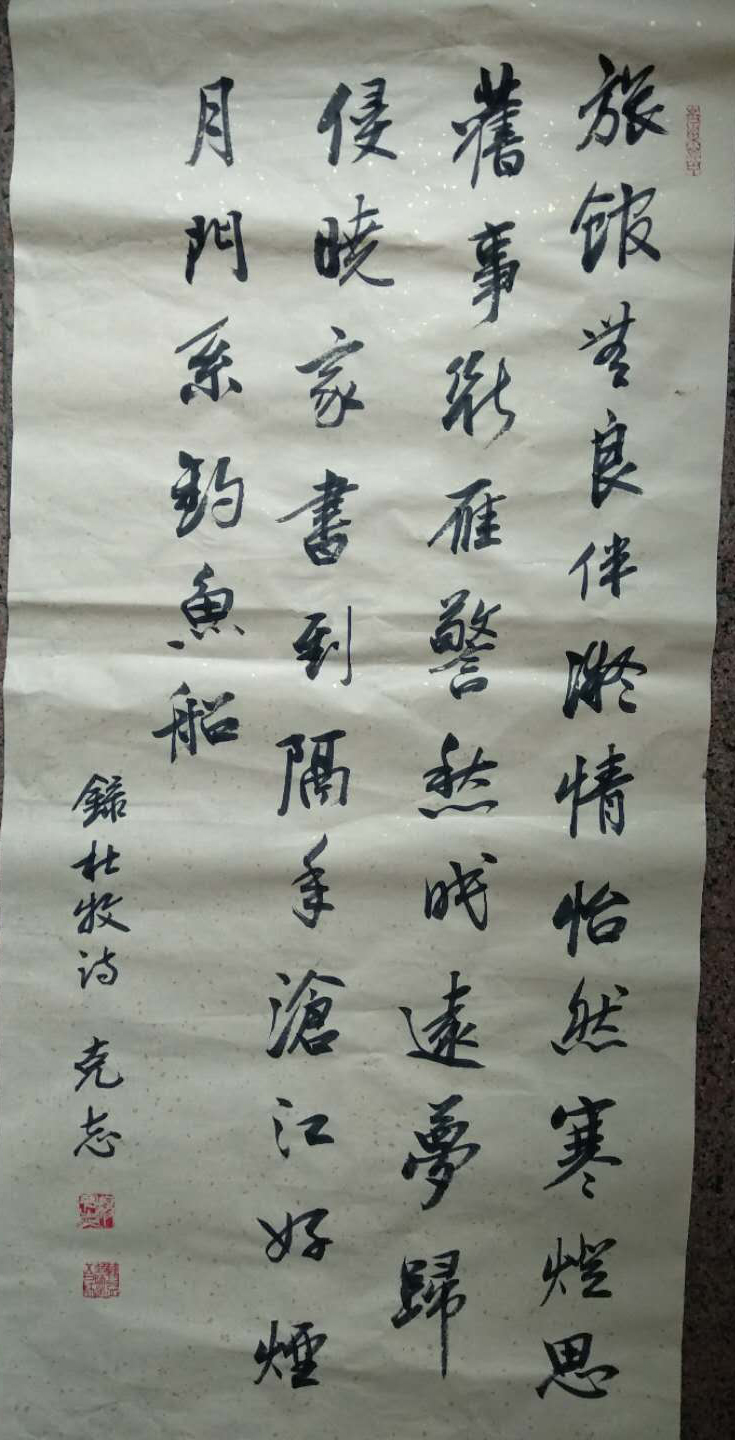 旅館無良伴凝情怡然寒燈思
舊事斷雁警愁眠遠夢歸
侵曉家書到隔年滄江好煙
月門系釣魚船
錄杜牧诗 克志